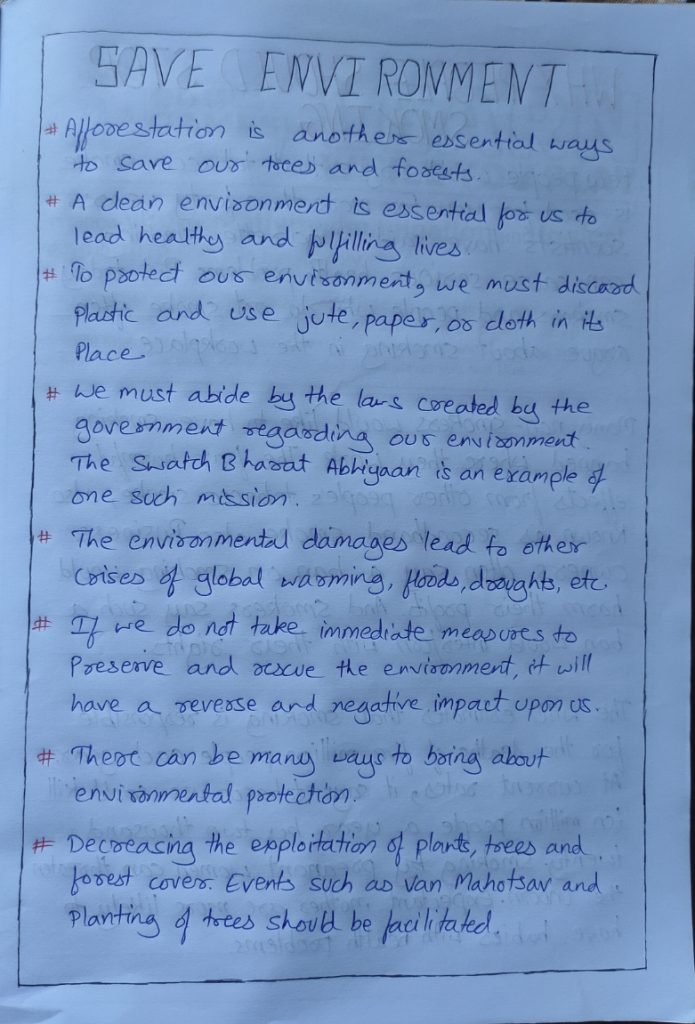 SAVE ENVIRONMENT
# Afforestation is another essential ways
to save our trees and forests.
# A clean environment is essential for us to
lead healthy and fulfilling lives.
# To protect our environment, we must discard
Plastic and use jute, paper, or cloth in its
Place
# We must abide by the laws created by the
government regarding our environment.
The Swatch Bharat Abhiyaan is an example of
one such mission.
# The environmental damages lead to other
Crises of global warming, floods, droughts, etc.
# If we do not take immediate measures to
Preserve and rescue the environment, it will
have a reverse and negative impact upon us.
# There can be many ways to bring about
environmental protection.
# Decreasing the exploitation of plants, trees and
forest cover. Events such as Van Mahotsav and
Planting of trees should be facilitated.